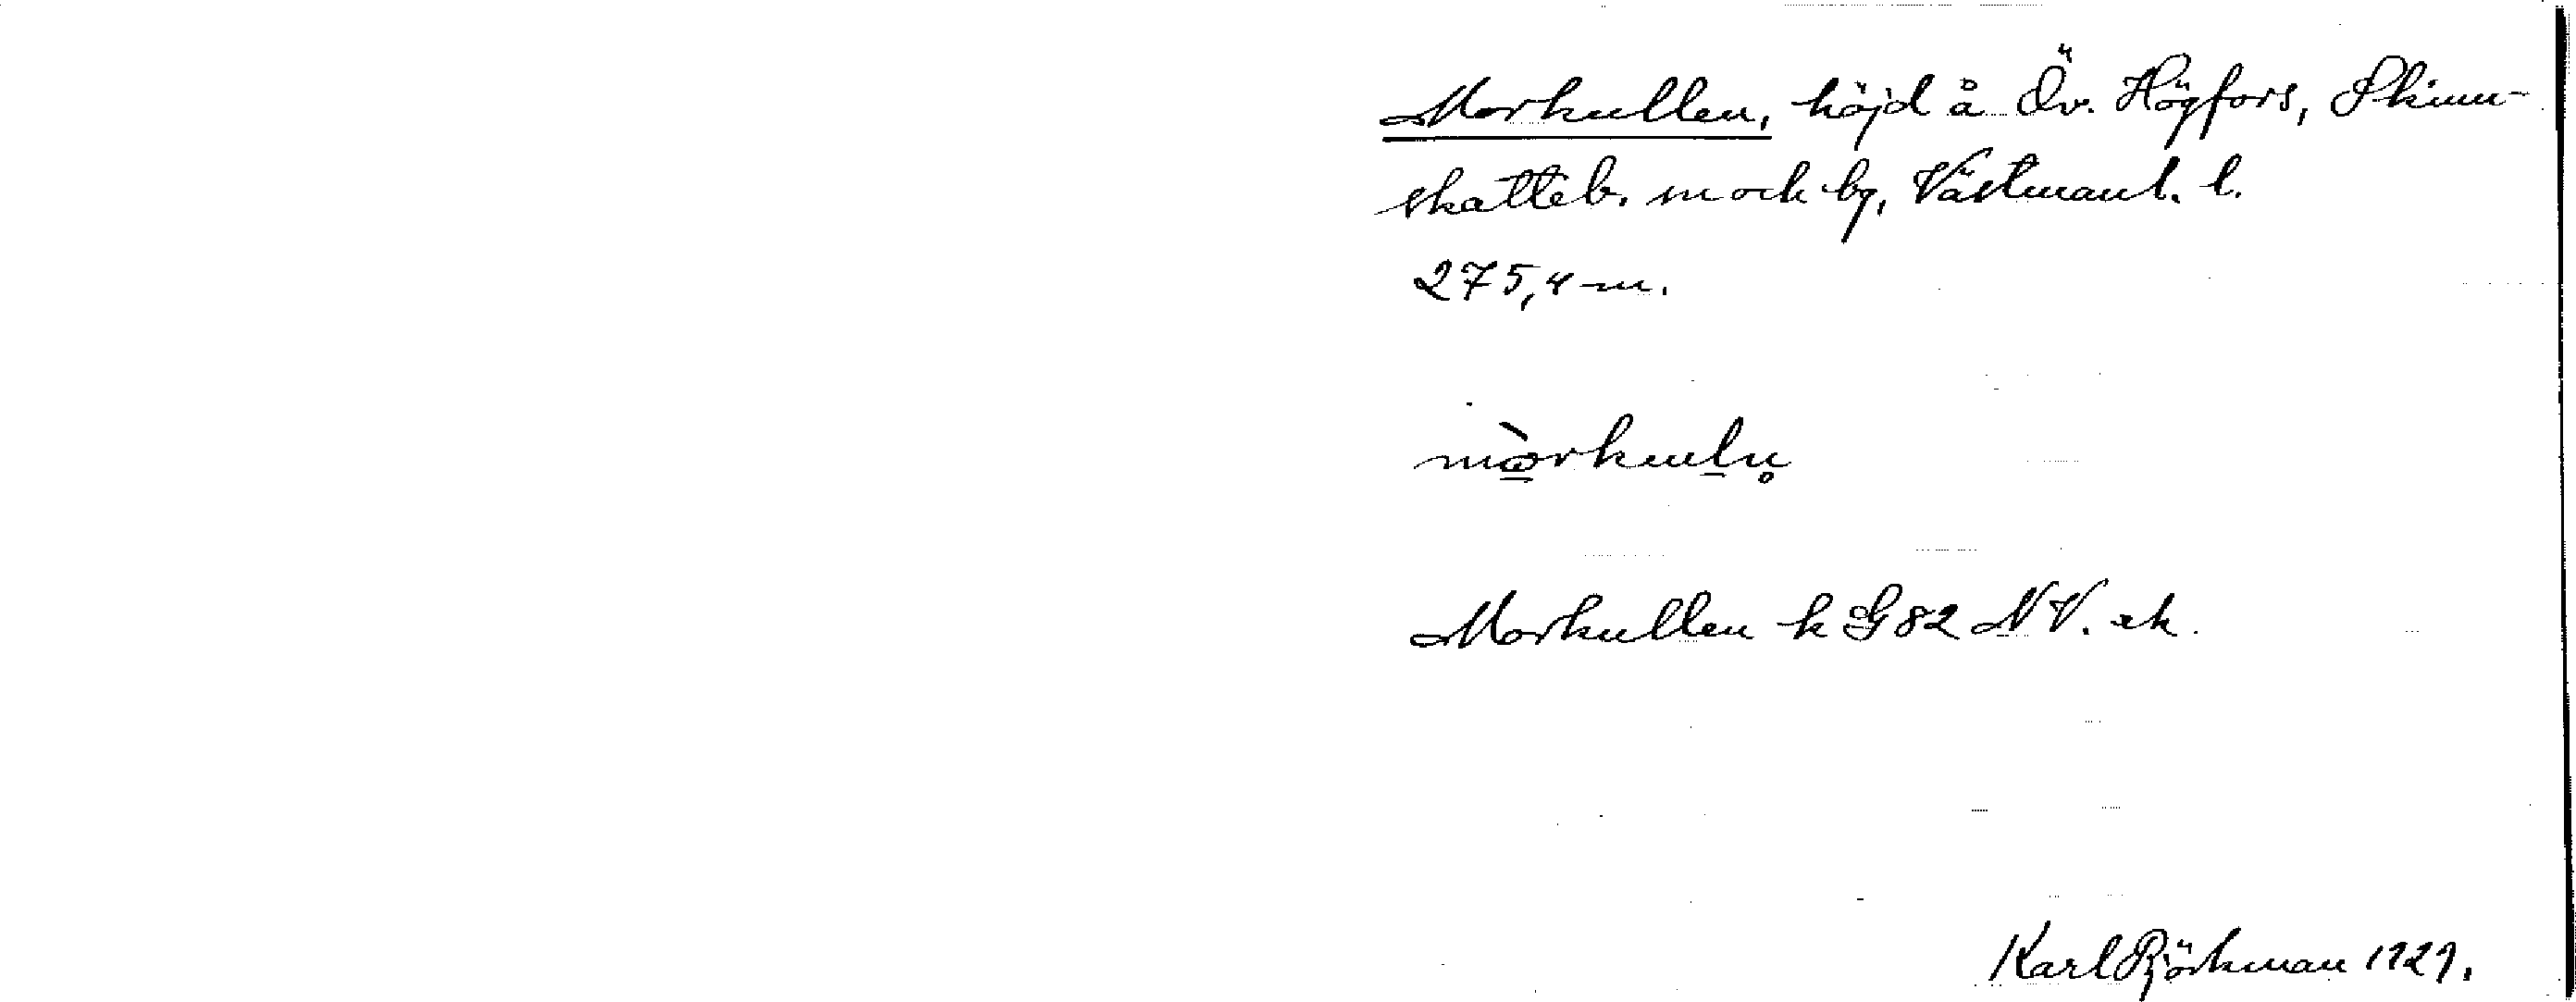 Morkullen, höjd å Öv. Högfors, Skinn-
skatteb. sn och bg, Västmanl. l.
275,4 m.
mòrkuln̥
Morkullen h G82 NV. ek.
Karl Björkman 1929.